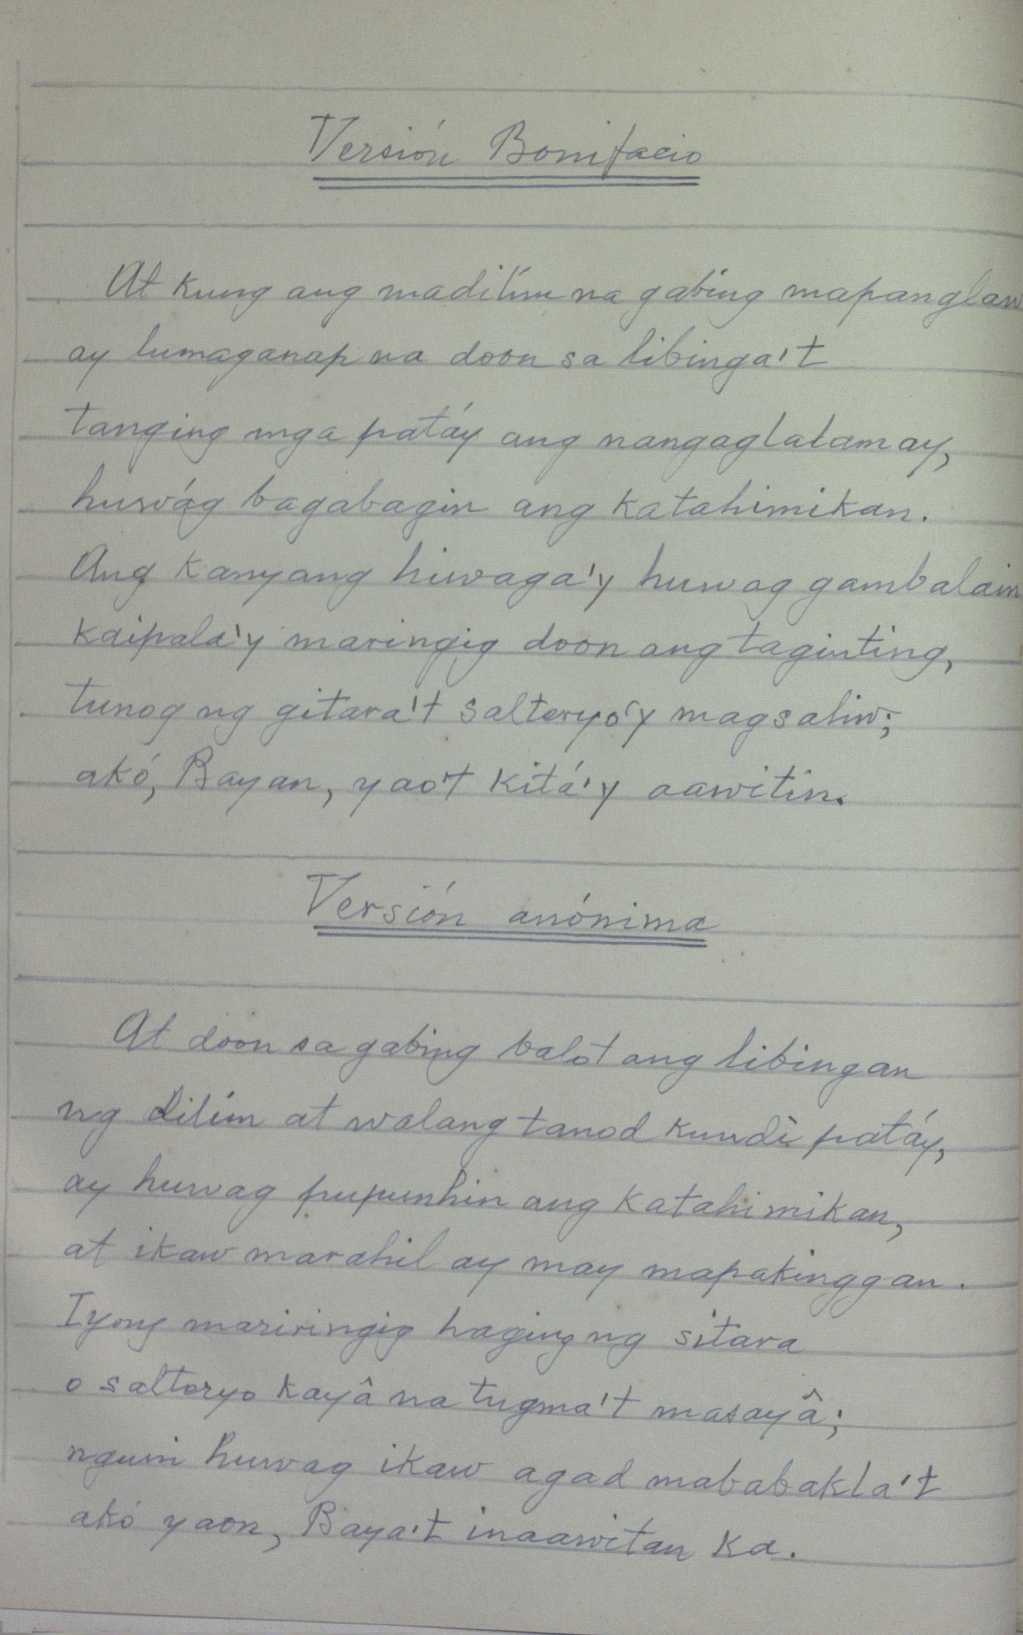 Versión Bonifacio
At kung ang madilím na gabing mapanglaw
ay lumaganap na doon sa libinga't
tanging mga patáy ang nangaglalamay,
huwág bagabagin ang katahimikan.
Ang kanyang hiwaga'y huwag gambalain
kaipala'y maringig doon ang taginting,
tunog ng gitara't salteryo'y magsaliw;
akó, Bayan, yao't kitá'y aawitin.
Versión anónima
At doon sa gabing balot ang libingan
ng dilím at walang tanod kundì patáy,
ay huwag pupunhin ang katahimikan,
at ikaw marahil ay may mapakinggan.
Iyong mariringig haging ng sitara
o salteryo kayâ na tugma't masayâ;
nguni huwag ikaw agad mababakla't
akó yaon, Baya't inaawitan ka.